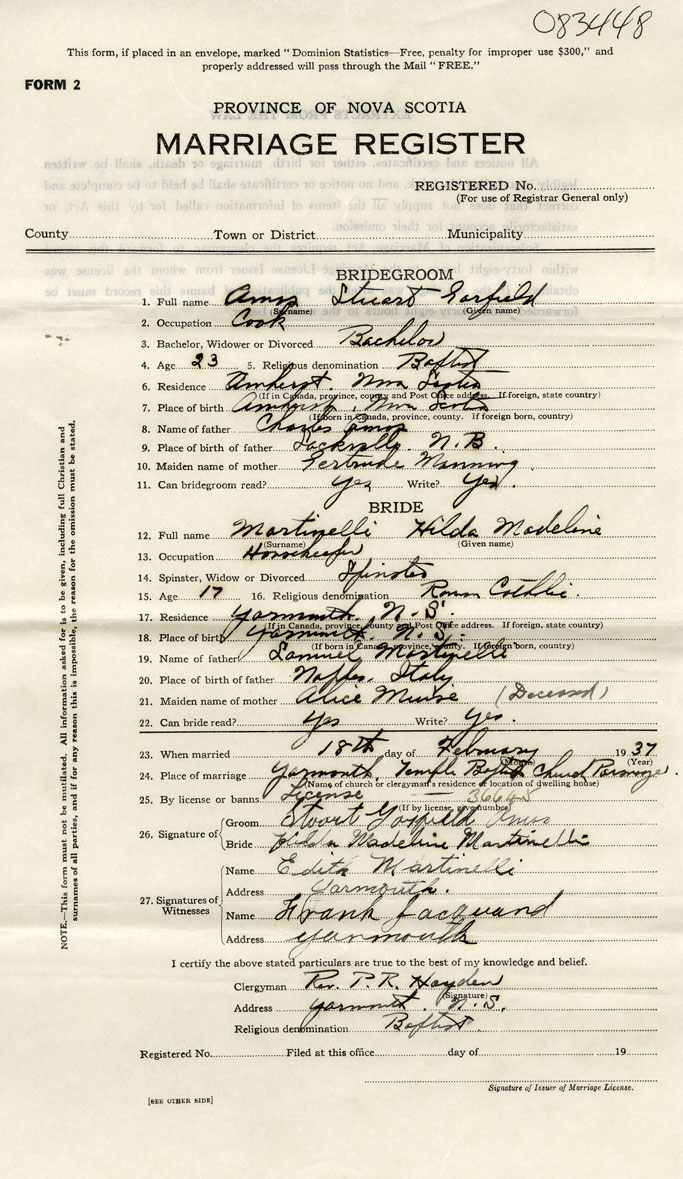 083448
This form, if placed in an envelope, marked "Dominion Statistics—Free, penalty for improper use $300," and
properly addressed will pass through the Mail "FREE."
FORM 2
PROVINCE OF NOVA SCOTIA
MARRIAGE REGISTER
REGISTERED No.
(For use of Registrar General only)
County Town or District Municipality
BRIDEGROOM
1. Full name Amos Stuart Garfield
(Surname) (Given name)
2. Occupation Cook
3. Bachelor, Widower or Divorced Bachelor
4. Age 23 5. Religious denomination Baptist
6. Residence Amherst, Nova Scotia
(If in Canada, province, county and Post Office address. If foreign, state country)
7. Place of birth Amherst, Nova Scotia
(If born in Canada, province, county. If foreign born, country)
8. Name of father Charles Amos
9. Place of birth of father Sackville, N.B.
10. Maiden name of mother Gertrude Manning
11. Can bridegroom read? Yes Write? Yes.
BRIDE
12. Full name Martinelli Hilda Madeline
(Surname) (Given name)
13. Occupation Housekeeper
14. Spinster, Widow or Divorced Spinster
15. Age 17 16. Religious denomination Roman Catholic.
17. Residence Yarmouth, N.S.
(If in Canada, province, county and Post Office address. If foreign, state country)
18. Place of birth Yarmouth, N.S.
(If born in Canada, province, county. If foreign born, country)
19. Name of father Samuel Martinelli
20. Place of birth of father Naples, Italy
21. Maiden name of mother Alice Muise (Deceased)
22. Can bride read? Yes Write? Yes.
23. When married 18th day of February 1937
(Month) (Year)
24. Place of marriage Yarmouth, Temple Baptist Church Parsonage.
(Name of church or clergyman's residence or location of dwelling house)
25. By license or banns License 36645
(If by license, give number)
26. Signature of
Groom Stuart Garfield Amos
Bride Hilda Madeline Martinelli
27. Signatures of Witnesses
Name Edith Martinelli
Address Yarmouth.
Name Frank Jacquard
Address Yarmouth
I certify the above stated particulars are true to the best of my knowledge and belief.
Clergyman Rev. P. R. Hayden
(Signature)
Address Yarmouth, N.S.
Religious denomination Baptist
Registered No. Filed at this office day of 19
Signature of Issuer of Marriage License.
[SEE OTHER SIDE]
NOTE.—This form must not be mutilated. All information asked for is to be given, including full Christian and
surnames of all parties, and if for any reason this is impossible, the reason for the omission must be stated.